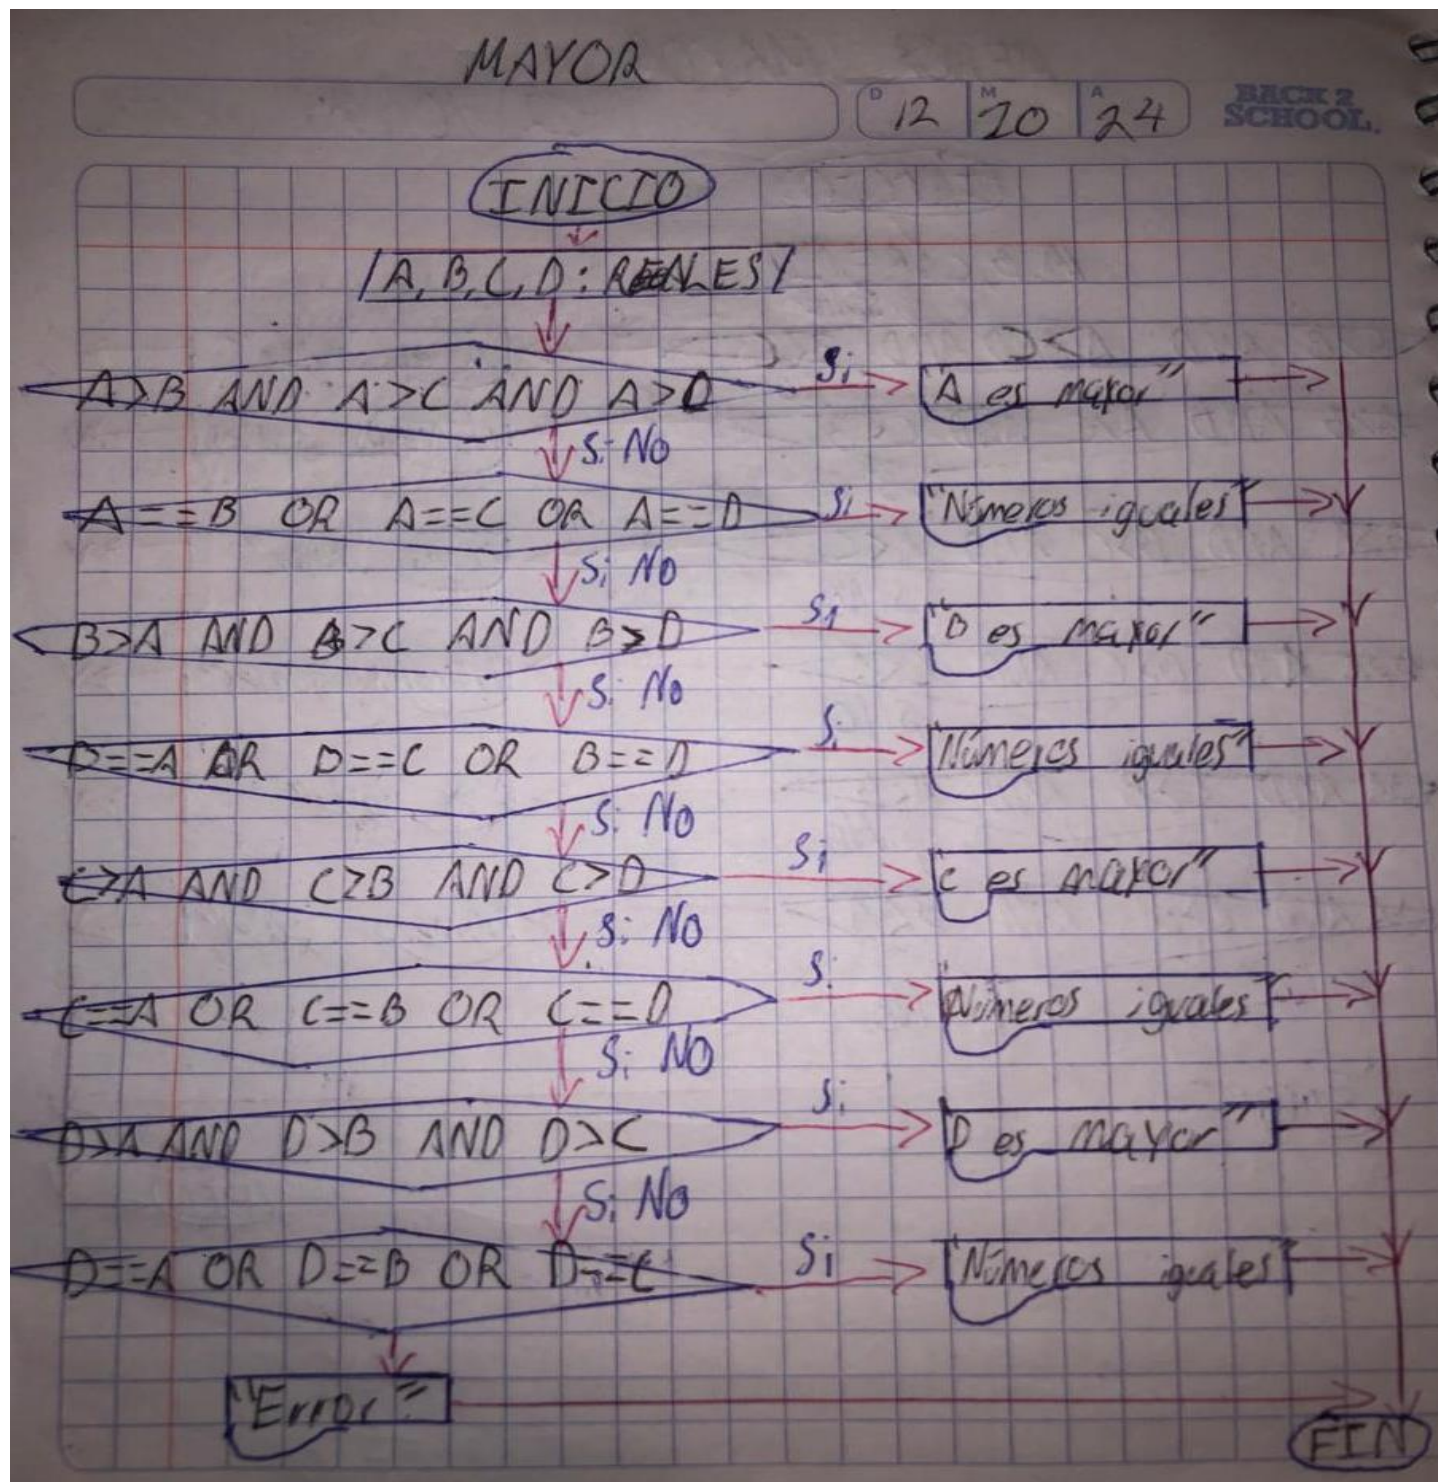 MAYOR
D 12 M 20 A 24 BACK 2 SCHOOL.
INICIO
A, B, C, D : REALES
A>B AND A>C AND A>D Si "A es mayor"
Si NO
A==B OR A==C OR A==D Si "Números iguales"
Si NO
B>A AND B>C AND B>D Si "B es mayor"
Si NO
B==A OR B==C OR B==D Si "Números iguales"
Si NO
C>A AND C>B AND C>D Si "C es mayor"
Si NO
C==A OR C==B OR C==D Si "Números iguales
Si NO
D>A AND D>B AND D>C Si "D es mayor"
Si NO
D==A OR D==B OR D==C Si "Números iguales
"Error"
FIN